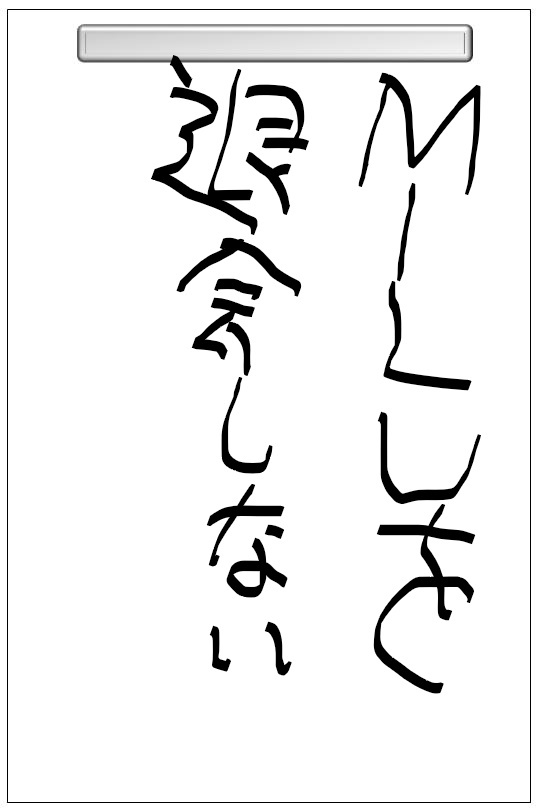 MILUを
退会しない